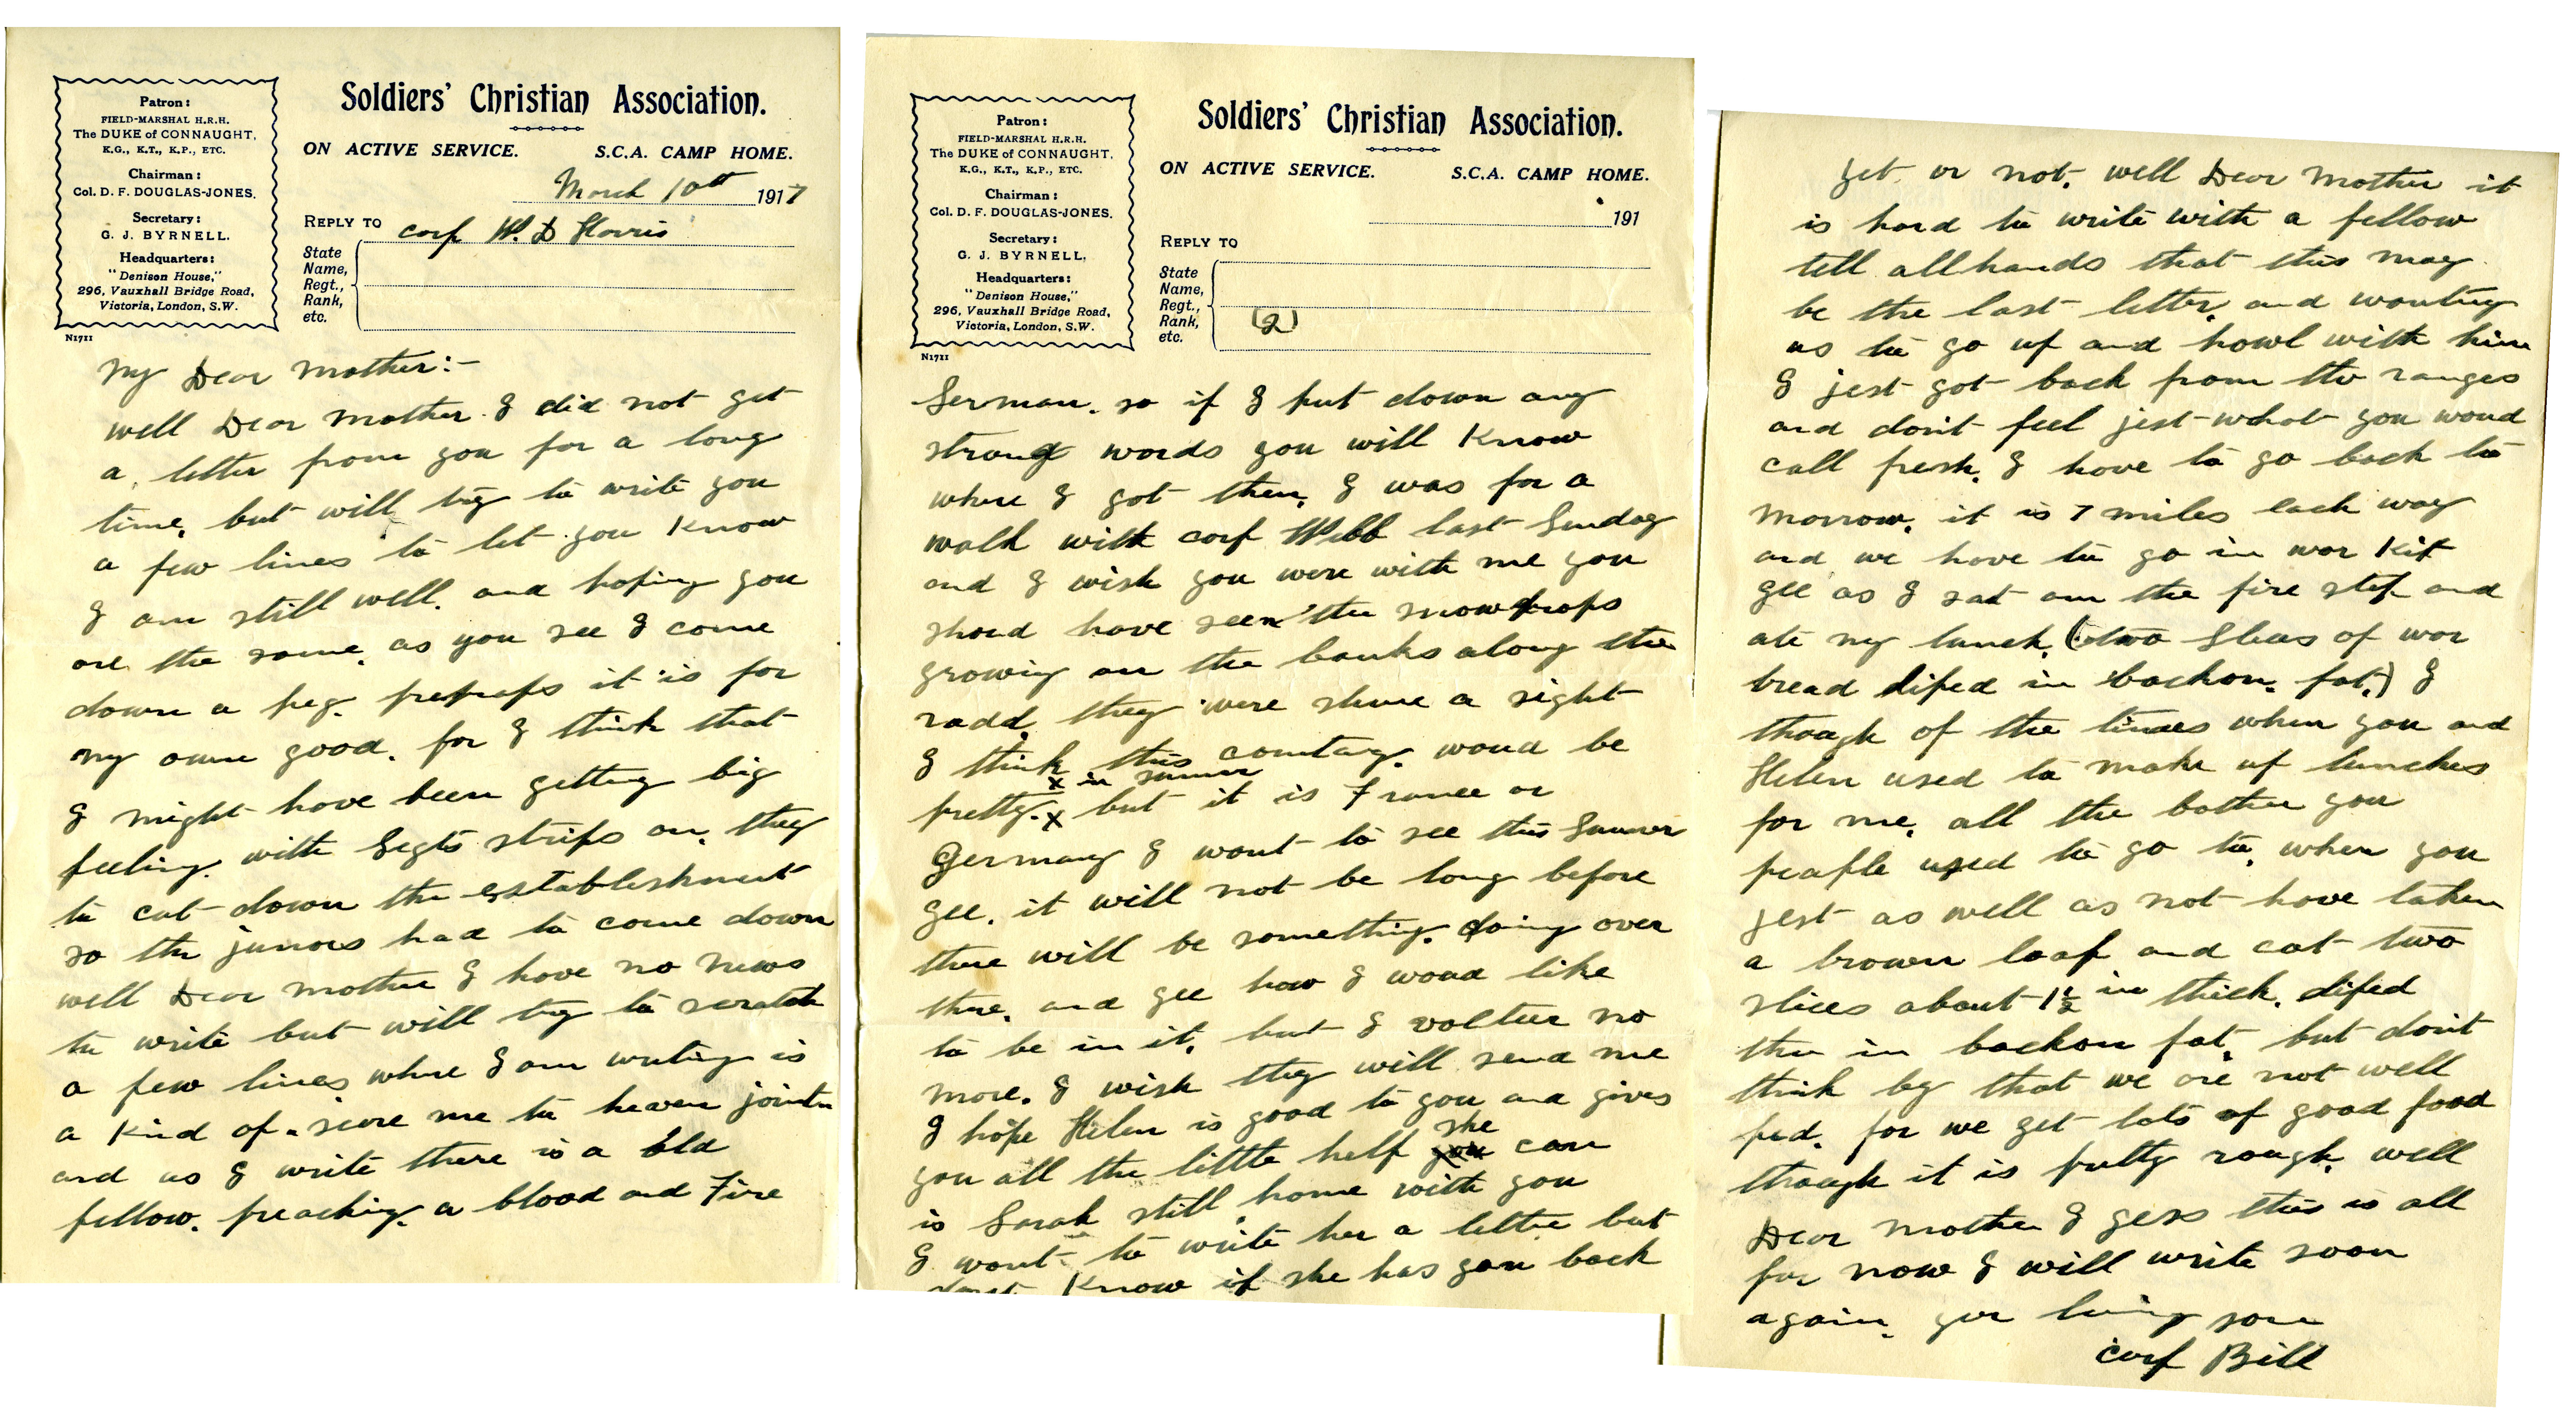 Patron:
FIELD-MARSHAL H.R.H.
The DUKE of CONNAUGHT,
K.G., K.T., K.P., ETC.
Chairman:
Col. D. F. DOUGLAS-JONES.
Secretary:
G. J. BYRNELL.
Headquarters:
"Denison House,"
296, Vauxhall Bridge Road,
Victoria, London, S.W.
N1711
Soldiers' Christian Association.
ON ACTIVE SERVICE. S.C.A. CAMP HOME.
March 10th 1917
REPLY TO corp W. D Harris
State
Name,
Regt.,
Rank,
etc.
My Dear Mother:-
well Dear Mother. I did not get
a letter from you for a long
time, but will try to write you
a few lines to let you know
I am still well. and hoping you
are the same. as you see I come
down a peg. prehaps it is for
my own good. for I think that
I might have been getting big
feeling. with Segts strips on. they
to cut down the establishment
so the juniors had to come down
well Dear Mother I have no news
to write but will try to scratch
a few lines where I am writing is
a kind of a scare me to heaven joint
and as I write there is a old
fellow. preaching. a blood and Fire
Patron:
FIELD-MARSHAL H.R.H.
The DUKE of CONNAUGHT,
K.G., K.T., K.P., ETC.
Chairman:
Col. D. F. DOUGLAS-JONES.
Secretary:
G. J. BYRNELL.
Headquarters:
"Denison House,"
296, Vauxhall Bridge Road,
Victoria, London, S.W.
N1711
Soldiers' Christian Association.
ON ACTIVE SERVICE. S.C.A. CAMP HOME.
191
REPLY TO
State
Name,
Regt.,
Rank,
etc.
(2)
Serman. so if I put down any
strong words you will know
where I got them. I was for a
walk with corp Webb last Sunday
and I wish you were with me you
shoud have seen the snowdrops
growing on the banks along the
roadd. they were shure a sight
I think this countary. woud be
x in sumer
pretty. x but it is France or
Germany I want to see this Summer
gee. it will not be long before
there will be something. doing over
there. and gee how I woud like
to be in it. but I volteer no
more. I wish they will send me
I hope Helen is good to you and gives
she
you all the little help you can
is Sarah still home with you
I want to write her a letter but
dont know if she has gon back
yet or not. well Dear Mother it
is hard to write with a fellow
tell all hands that this may
be the last letter. and wanting
us to go up and howl with him
I jest got back from the ranges
and don't feel jest what you woud
call fresh. I have to go back to
morrow. it is 7 miles each way
and we have to go in war Kit
gee as I sat on the fire step and
ate my lunch. (two slices of war
bread diped in backon. fat.) I
though of the times when you and
Helen used to make up lunches
for me. all the bother you
peaple used to go to. when you
jest as well as not have taken
a brown loaf and cut two
slices about 1½ in thick. diped
the in backon fat. but don't
think by that we are not well
fed. for we get lots of good food
though it is putty rough. well
Dear Mother I gess this is all
for now I will write soon
again. yor loving son
corp Bill